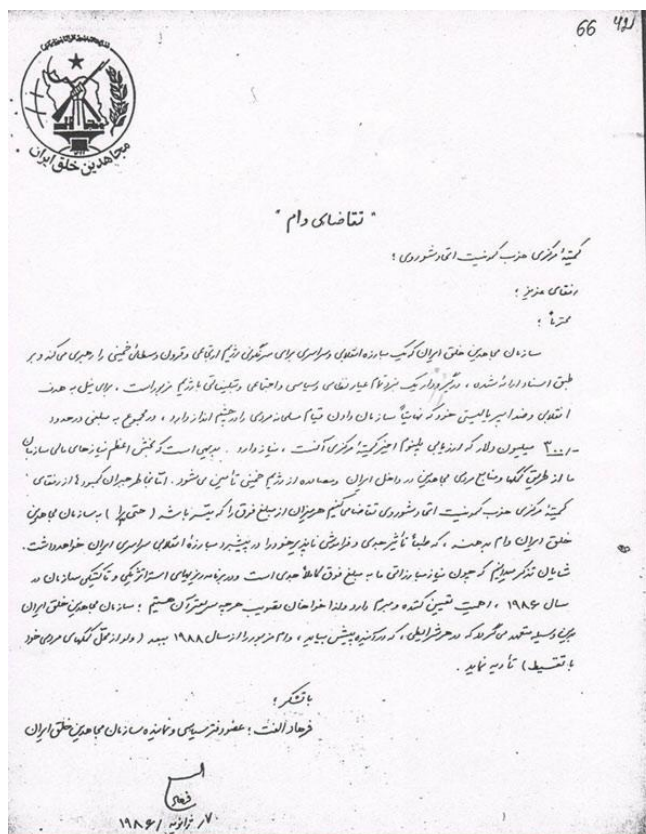 66
مجاهدین خلق ایران
" تقاضای وام "
کمیتهٔ مرکزی حزب کمونیست اتحاد شوروی ؛
رفقای عزیز ؛
محترماً ؛
سازمان مجاهدین خلق ایران که یک مبارزه انقلابی و سراسری برای سرنگونی رژیم ارتجاعی و قرون وسطائی خمینی را رهبری می‌کند و بر
طبق اسناد ارائه شده ، درگیر و دار یک نبرد تمام عیار نظامی و سیاسی و اجتماعی و تبلیغاتی با رژیم مزبور است . برای نیل به هدف
انقلابی و ضد امپریالیستی خود که نهایتاً سازمان دادن قیام مسلحانه مردمی را در چشم انداز دارد ، در مجموع به مبلغی در حدود
۳۰۰/- میلیون دلار که ارزیابی پلنوم اخیر کمیتهٔ مرکزی آنست ، نیاز دارد . بدیهی است که بخش اعظم نیازهای مالی سازمان
ما از طریق کمکها و منابع مردمی مجاهدین در داخل ایران و مصادره از رژیم خمینی تأمین می‌شود . امّا بخاطر جبران کمبودها از رفقای
کمیتهٔ مرکزی حزب کمونیست اتحاد شوروی تقاضا می‌کنیم هر میزان از مبلغ فوق را که میسّر باشد ( ) به سازمان مجاهدین
خلق ایران وام بدهند ، که طبعاً تأثیر جدی و فراموشی ناپذیر خود را در پیشبرد مبارزهٔ انقلابی سراسری ایران خواهد داشت .
شایان تذکر میدانم که چون نیاز مبارزاتی ما به مبلغ فوق کاملاً جدی است و در برنامه ریزیهای استراتژیکی و تاکتیکی سازمان در
سال ۱۹۸۶ ، اهمیت تعیین کننده و مبرم دارد ولذا خواهان تصویب هرچه سریعتر آن هستیم ؛ سازمان مجاهدین خلق ایران
بدین وسیله متعهد می‌گردد که در هر شرایطی ، که در آینده پیش بیاید ، وام مزبور را از سال ۱۹۸۸ ببعد ( ولو از محل کمکهای مردمی خود
با تقسیط ) تأدیه نماید .
با تشکر ؛
فرهاد الفت ؛ عضو دفتر سیاسی و نماینده سازمان مجاهدین خلق ایران
۷/ ژانویه / ۱۹۸۶